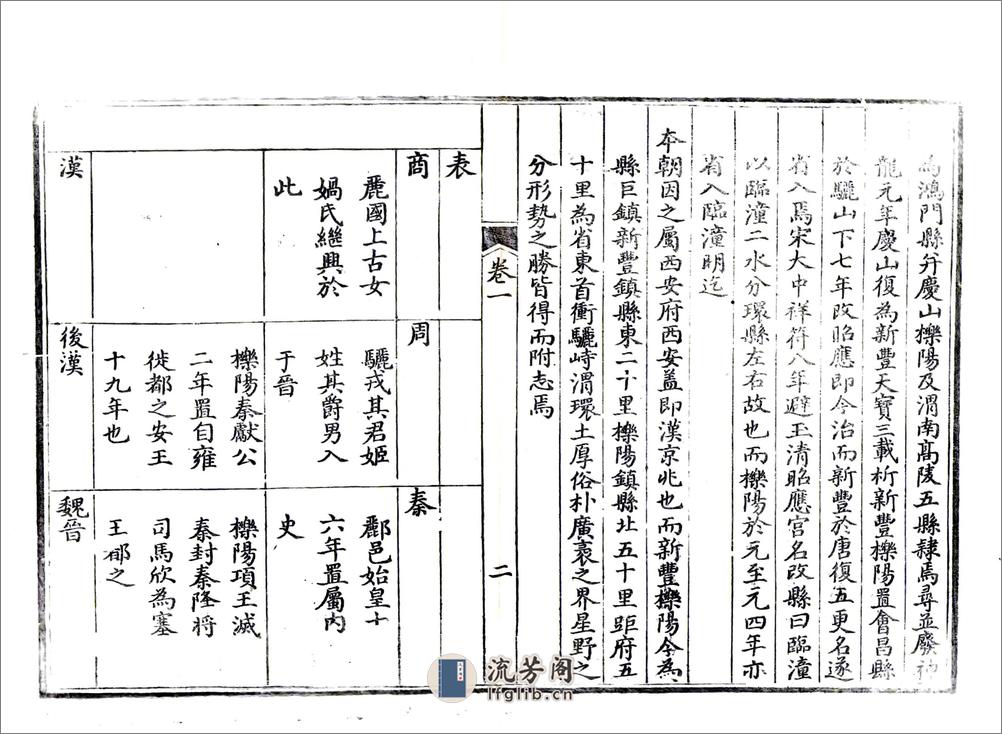 為鴻門縣幷慶山櫟陽及渭南高陵五縣隷焉尋並廢神
龍元年慶山復為新豐天寶三載析新豐櫟陽置會昌縣
於驪山下七年改昭應即今治而新豐於唐復五更名遂
省入焉宋大中祥符八年避玉清昭應宫名改縣曰臨潼
以臨潼二水分環縣左右故也而櫟陽於元至元四年亦
省入臨潼明迄
本朝因之屬西安府西安盖即漢京兆也而新豐櫟陽今為
縣巨鎮新豐鎮縣東二十里櫟陽鎮縣北五十里距府五
十里為省東首衝驪峙渭環土厚俗朴廣袤之界星野之
分形勢之勝皆得而附志焉
卷一
二
表
商
麗國上古女
媧氏繼興於
此
周
驪戎其君姬
姓其爵男入
于晉
櫟陽秦獻公
二年置自雍
徙都之安王
十九年也
秦
酈邑始皇十
六年置屬内
史
櫟陽項王滅
秦封秦降將
司馬欣為塞
王都之
漢
後漢
魏晉
流芳阁
lfglib.cn